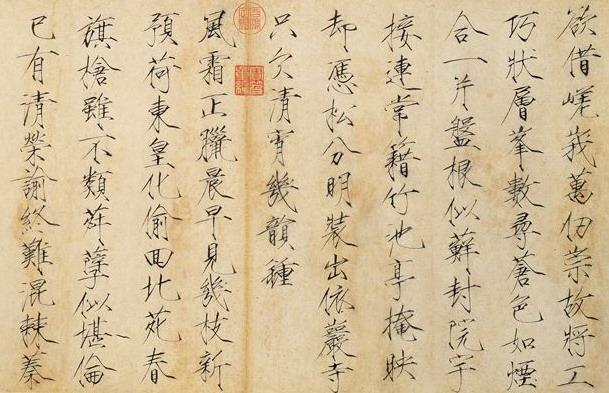 欲借嵯峨萬仞崇故將工
巧狀層峯數尋蒼色如煙
合一片盤根似蘚封院宇
接連常籍竹池亭掩映
却憑松分明裝出依巖寺
只欠清宵幾韻鍾
風霜正臘晨早見幾枝新
預荷東皇化偷回北苑春
旗槍雖不類荈蘖似堪倫
已有清榮諭終難混棘蓁